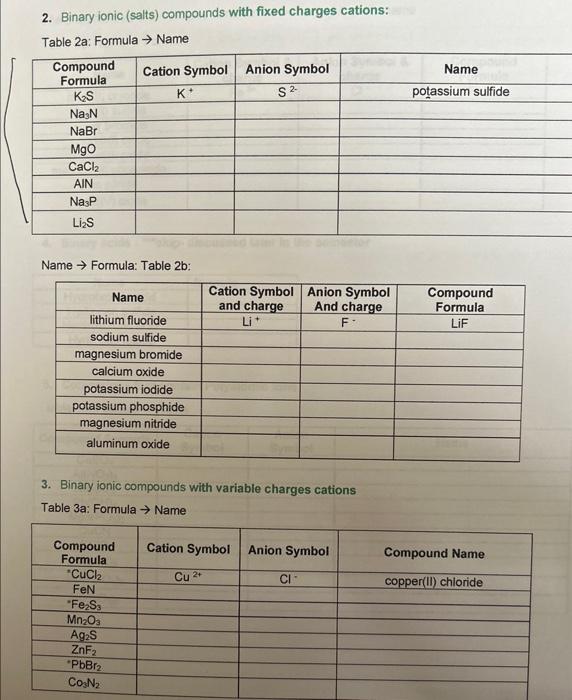 2. Binary ionic (salts) compounds with fixed charges cations:
Table 2a: Formula → Name
Compound Formula Cation Symbol Anion Symbol Name
K₂S K⁺ S²⁻ potassium sulfide
Na₃N
NaBr
MgO
CaCl₂
AlN
Na₃P
Li₂S
Name → Formula: Table 2b:
Name Cation Symbol and charge Anion Symbol And charge Compound Formula
lithium fluoride Li⁺ F⁻ LiF
sodium sulfide
magnesium bromide
calcium oxide
potassium iodide
potassium phosphide
magnesium nitride
aluminum oxide
3. Binary ionic compounds with variable charges cations
Table 3a: Formula → Name
Compound Formula Cation Symbol Anion Symbol Compound Name
*CuCl₂ Cu²⁺ Cl⁻ copper(II) chloride
FeN
*Fe₂S₃
Mn₂O₃
Ag₂S
ZnF₂
*PbBr₂
Co₃N₂